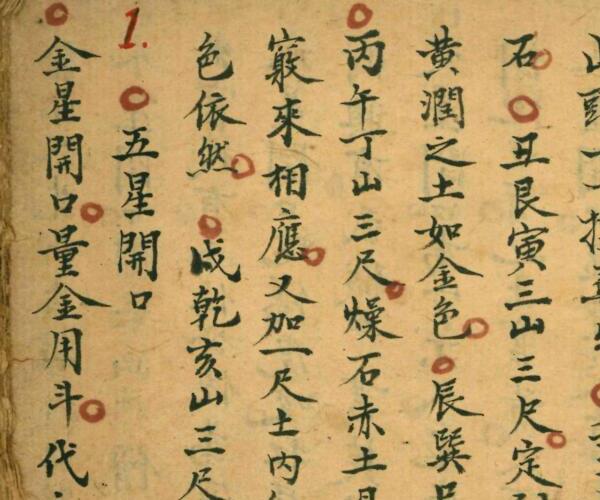 山頭一
石丑艮寅三山三尺定
黃潤之土如金色辰巽
丙午丁山三尺燥石赤土
窮來相應又加一尺土內
色依然戌乾亥山三尺
1.五星開口
金星開口量金用斗代